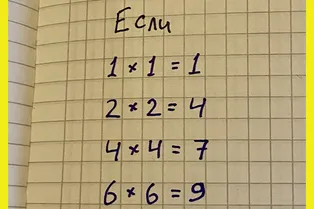 Если
1 × 1 = 1
2 × 2 = 4
4 × 4 = 7
6 × 6 = 9